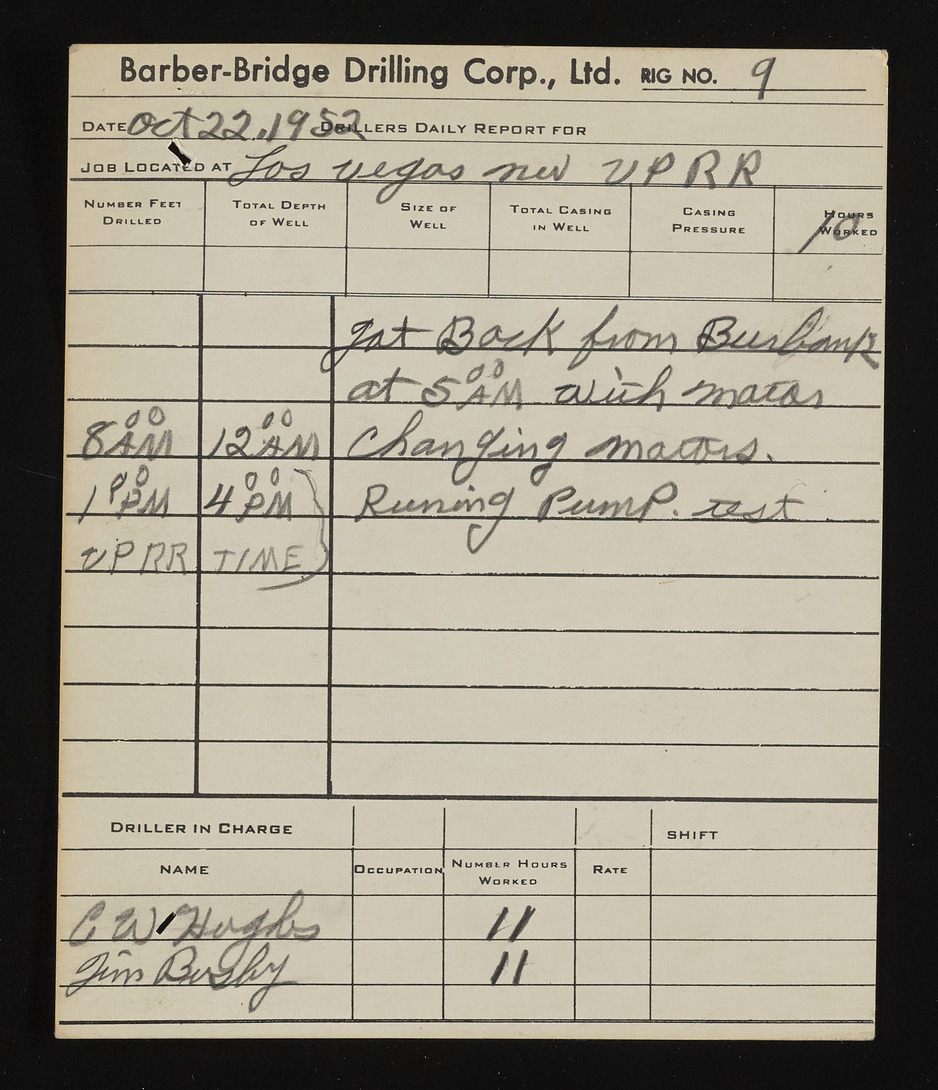 Barber-Bridge Drilling Corp., Ltd. RIG NO. 9
DATE Oct 22, 1952 DRILLERS DAILY REPORT FOR
JOB LOCATED AT Los vegas nev UPRR
NUMBER FEET DRILLED TOTAL DEPTH OF WELL SIZE OF WELL TOTAL CASING IN WELL CASING PRESSURE HOURS WORKED
10
got Back from Burbank
at 5 00 AM with motor
8 00 AM 12 00 AM Changing motors.
1 00 PM 4 00 PM Runing PumP. test
UPRR TIME
DRILLER IN CHARGE SHIFT
NAME OCCUPATION NUMBER HOURS WORKED RATE
C W Hughs 11
Jim Busby 11